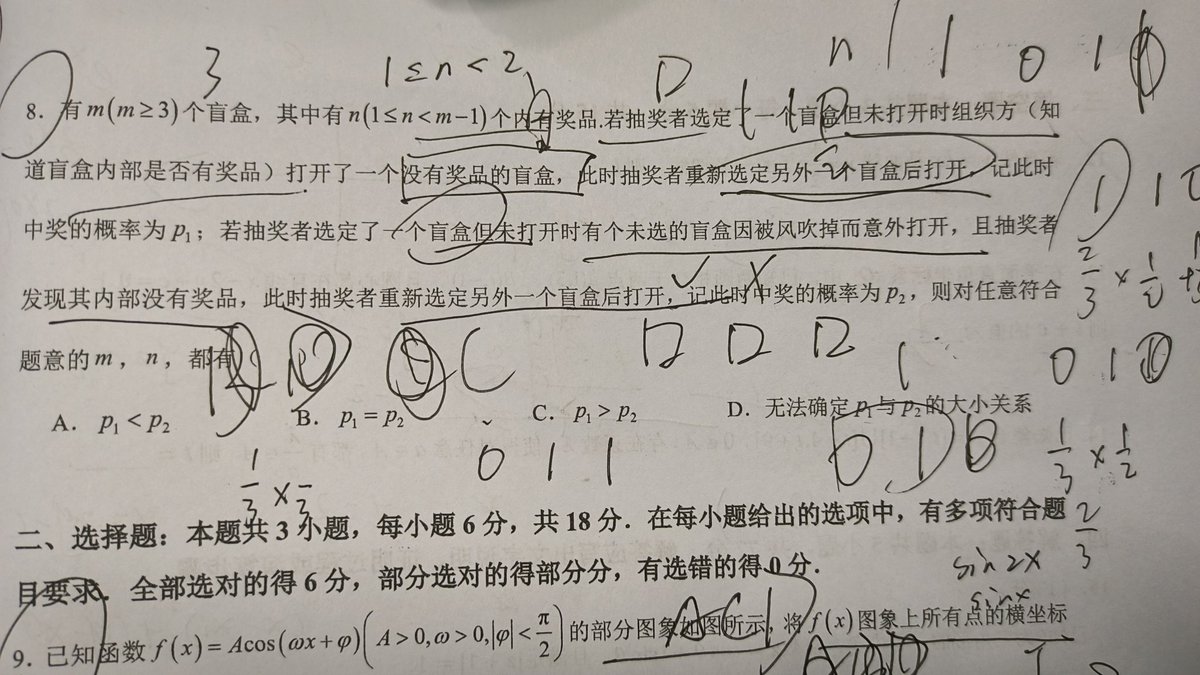 3 1≤n<2 D n 1 1 0 1
8. 有 m(m≥3) 个盲盒，其中有 n(1≤n<m−1) 个内有奖品.若抽奖者选定了一个盲盒但未打开时组织方（知
道盲盒内部是否有奖品）打开了一个没有奖品的盲盒，此时抽奖者重新选定另外一个盲盒后打开，记此时
中奖的概率为 p₁；若抽奖者选定了一个盲盒但未打开时有个未选的盲盒因被风吹掉而意外打开，且抽奖者
发现其内部没有奖品，此时抽奖者重新选定另外一个盲盒后打开，记此时中奖的概率为 p₂，则对任意符合
2/3 × 1/2 +
题意的 m，n，都有
0 1
A. p₁ < p₂ B. p₁ = p₂ C. p₁ > p₂ D. 无法确定 p₁ 与 p₂ 的大小关系
1/3 × 0 1 1 0 1 1/3 × 1/2
二、选择题：本题共 3 小题，每小题 6 分，共 18 分．在每小题给出的选项中，有多项符合题
2/3
目要求．全部选对的得 6 分，部分选对的得部分分，有选错的得 0 分．
sin2x
sinx
9. 已知函数 f(x)=Acos(ωx+φ)(A>0,ω>0,|φ|<π/2) 的部分图象如图所示，将 f(x) 图象上所有点的横坐标